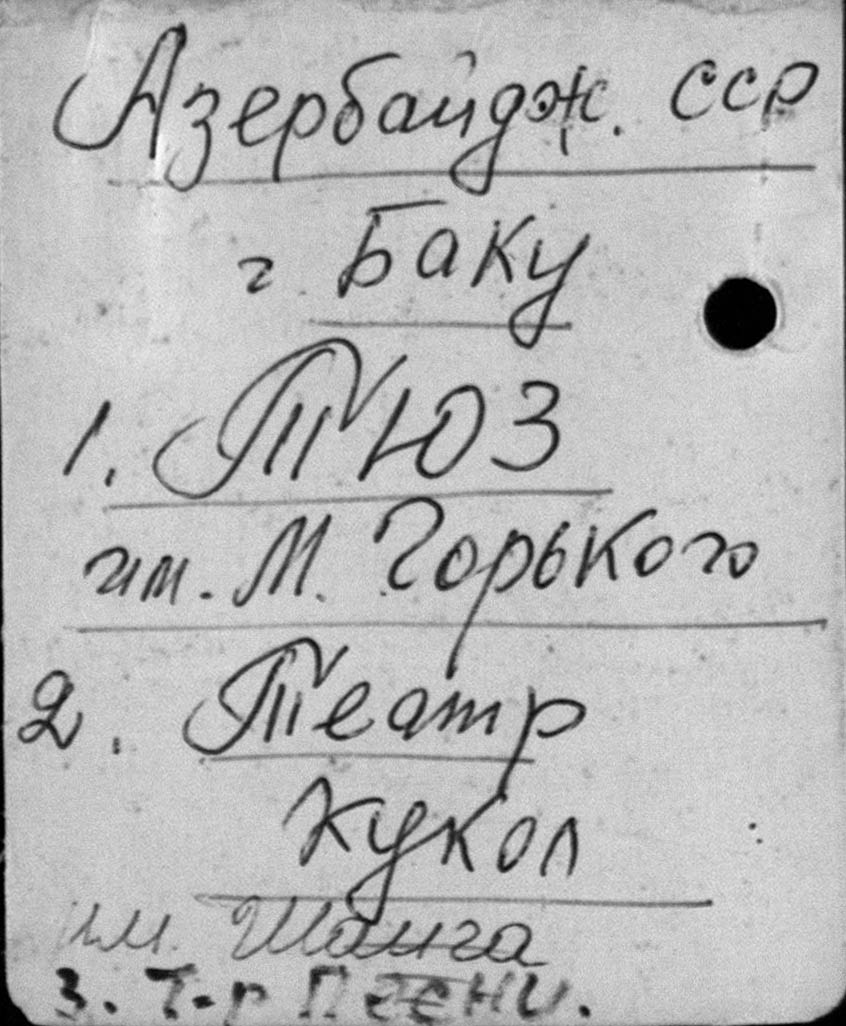 Азербайдж. ССР
г. Баку
1. ТЮЗ
им. М. Горького
2. Театр
Кукол
им. Шаига
3. Т-р Песни.